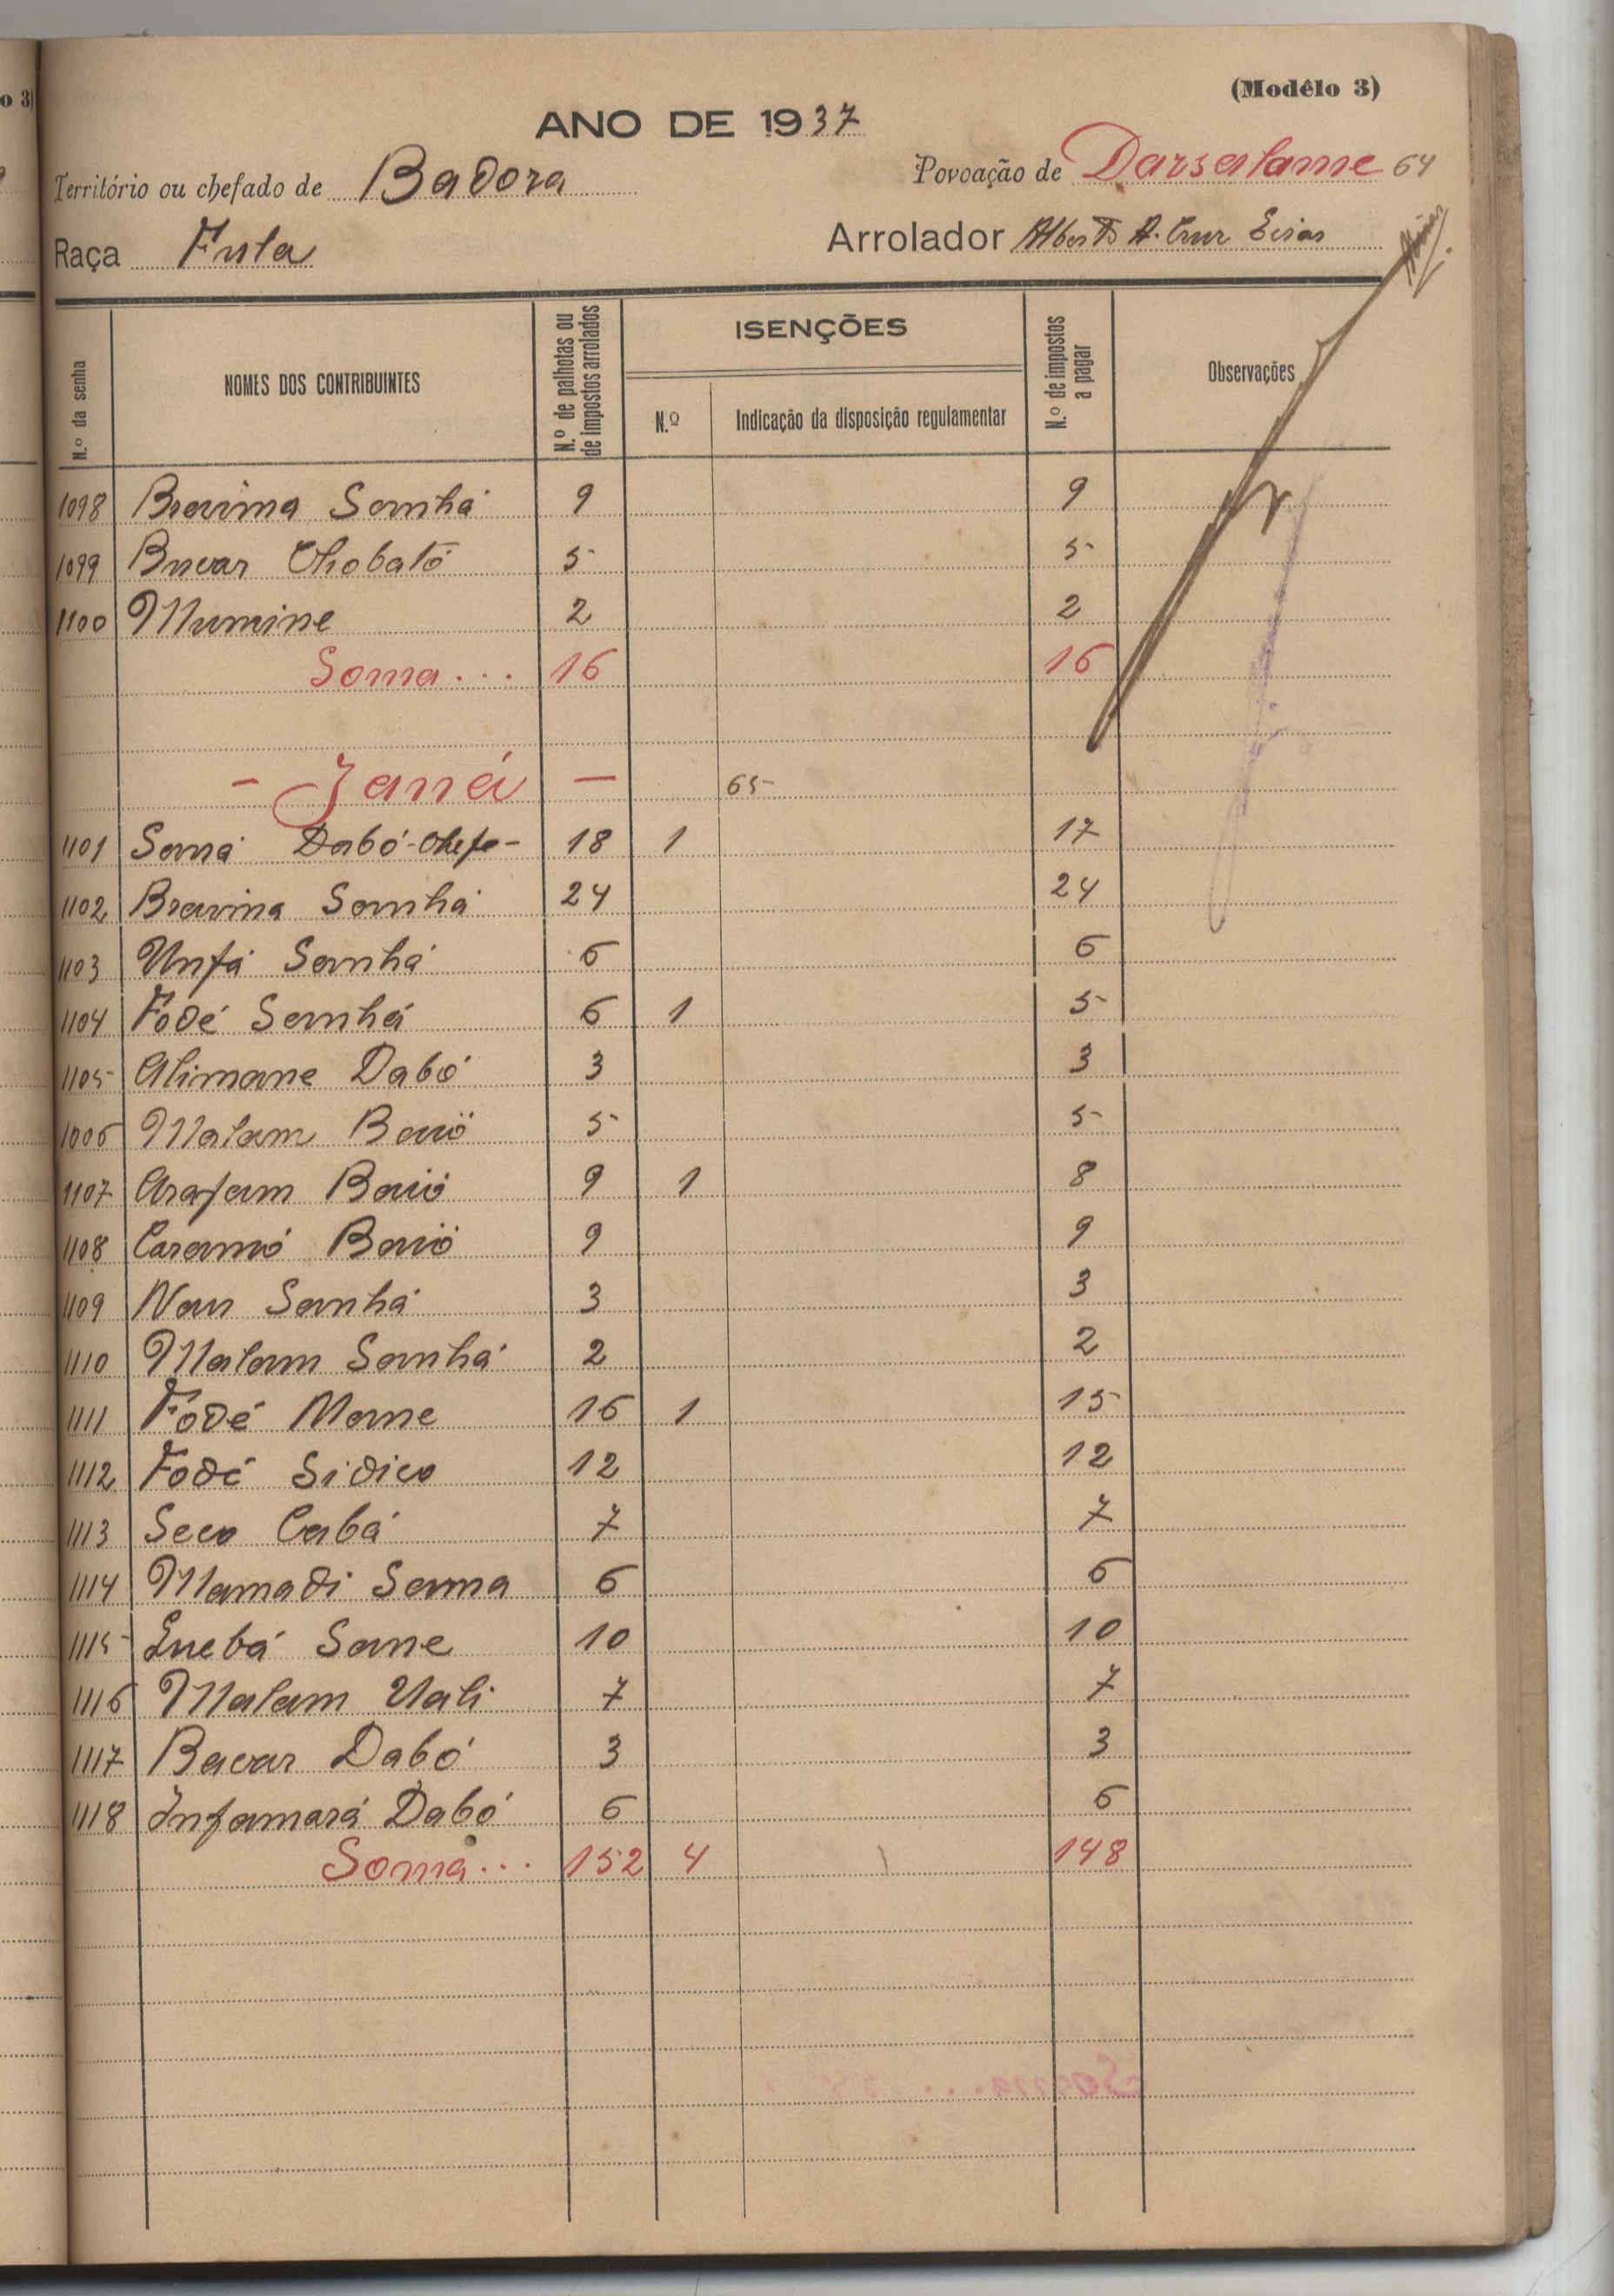 o 3)
(Modêlo 3)
ANO DE 1937
Território ou chefado de Badora
Povoação de Darsalame 64
Raça Fula
Arrolador Alberto A. Cruz
N.º da senha
NOMES DOS CONTRIBUINTES
N.º de palhotas ou de impostos arrolados
ISENÇÕES
N.º
Indicação da disposição regulamentar
N.º de impostos a pagar
Observações
1098 Braima Sanhá 9 9
1099 Bucar 5 5
1100 Mumine 2 2
Soma... 16 16
- Janá - 65
1101 Saná Dabó-Chefe- 18 1 17
1102 Braima Sanhá 24 24
1103 Unfá Sanhá 6 6
1104 Fodé Sanhá 6 1 5
1105 Alimane Dabó 3 3
1006 Malam Baió 5 5
1107 Arafam Baió 9 1 8
1108 Caramó Baió 9 9
1109 Nan Sanhá 3 3
1110 Malam Sanhá 2 2
1111 Fodé Mane 16 1 15
1112 Fodé Sidico 12 12
1113 Seco Cabá 7 7
1114 Mamadi Sama 6 6
1115 Sane 10 10
1116 Malam Uali 7 7
1117 Bacar Dabó 3 3
1118 Infamará Dabó 6 6
Soma... 152 4 148